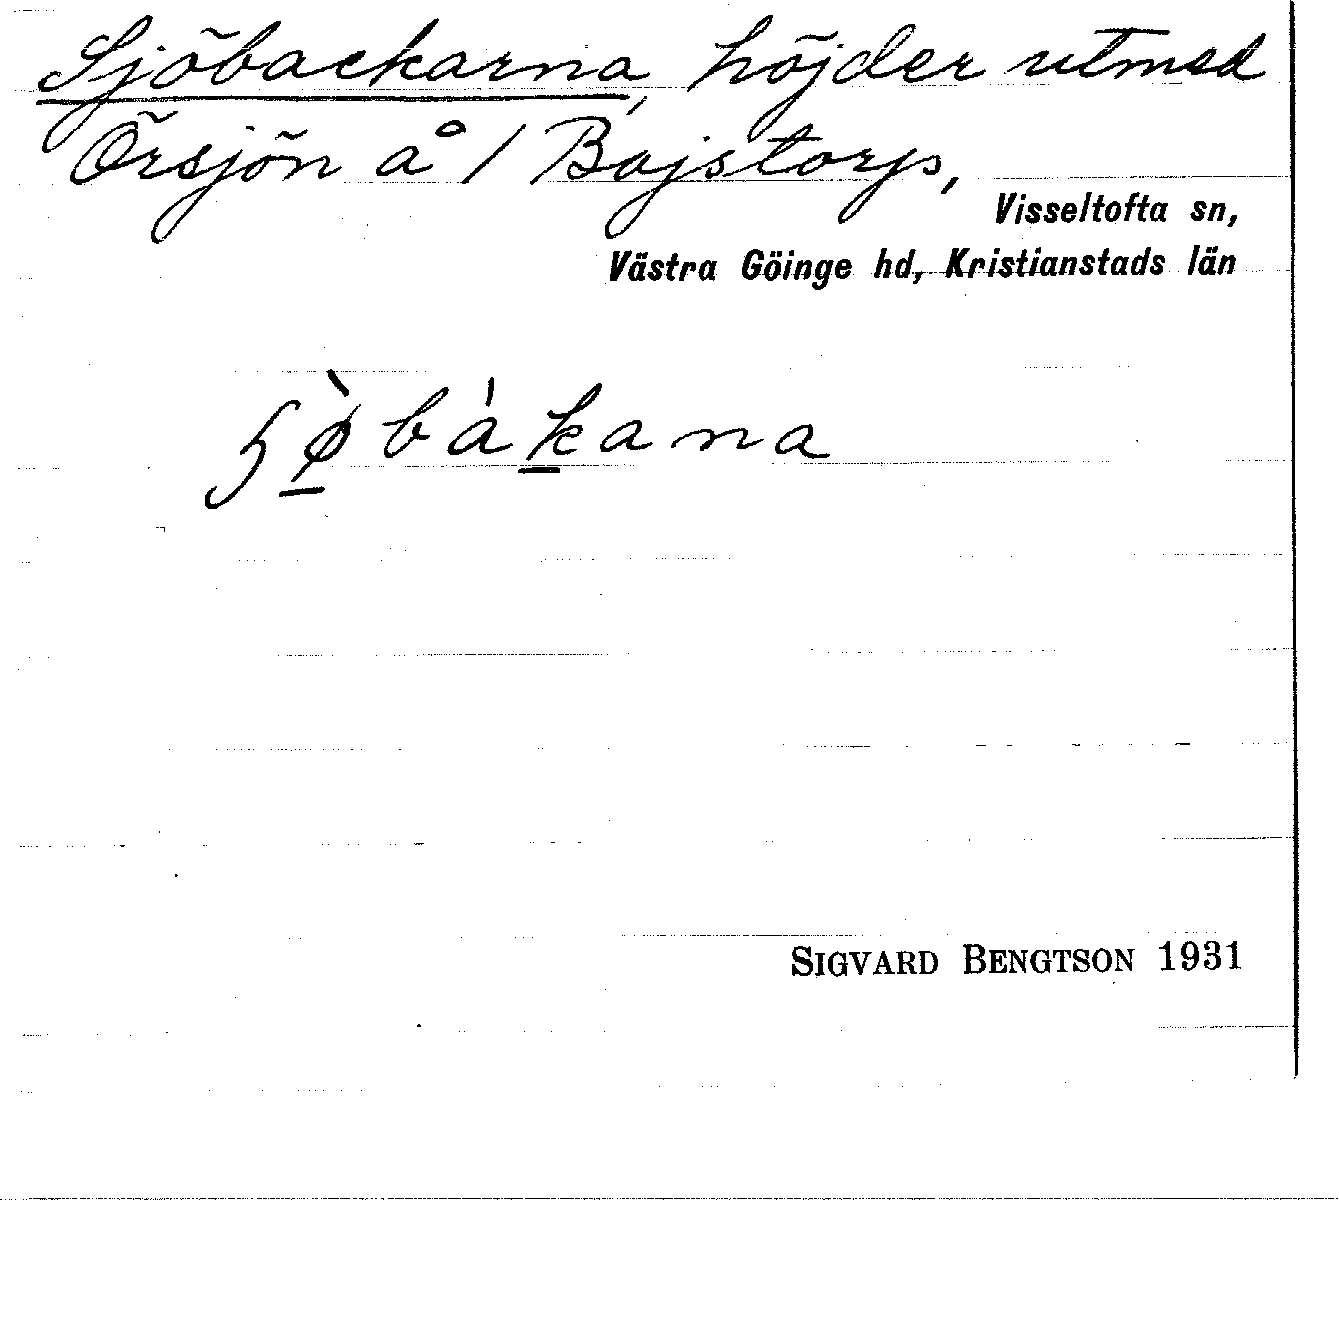 Sjöbackarna, höjder utmed
Örsjön å 1 Bojstorp,
Visseltofta sn,
Västra Göinge hd, Kristianstads län
ʃø̀bákana
SIGVARD BENGTSON 1931